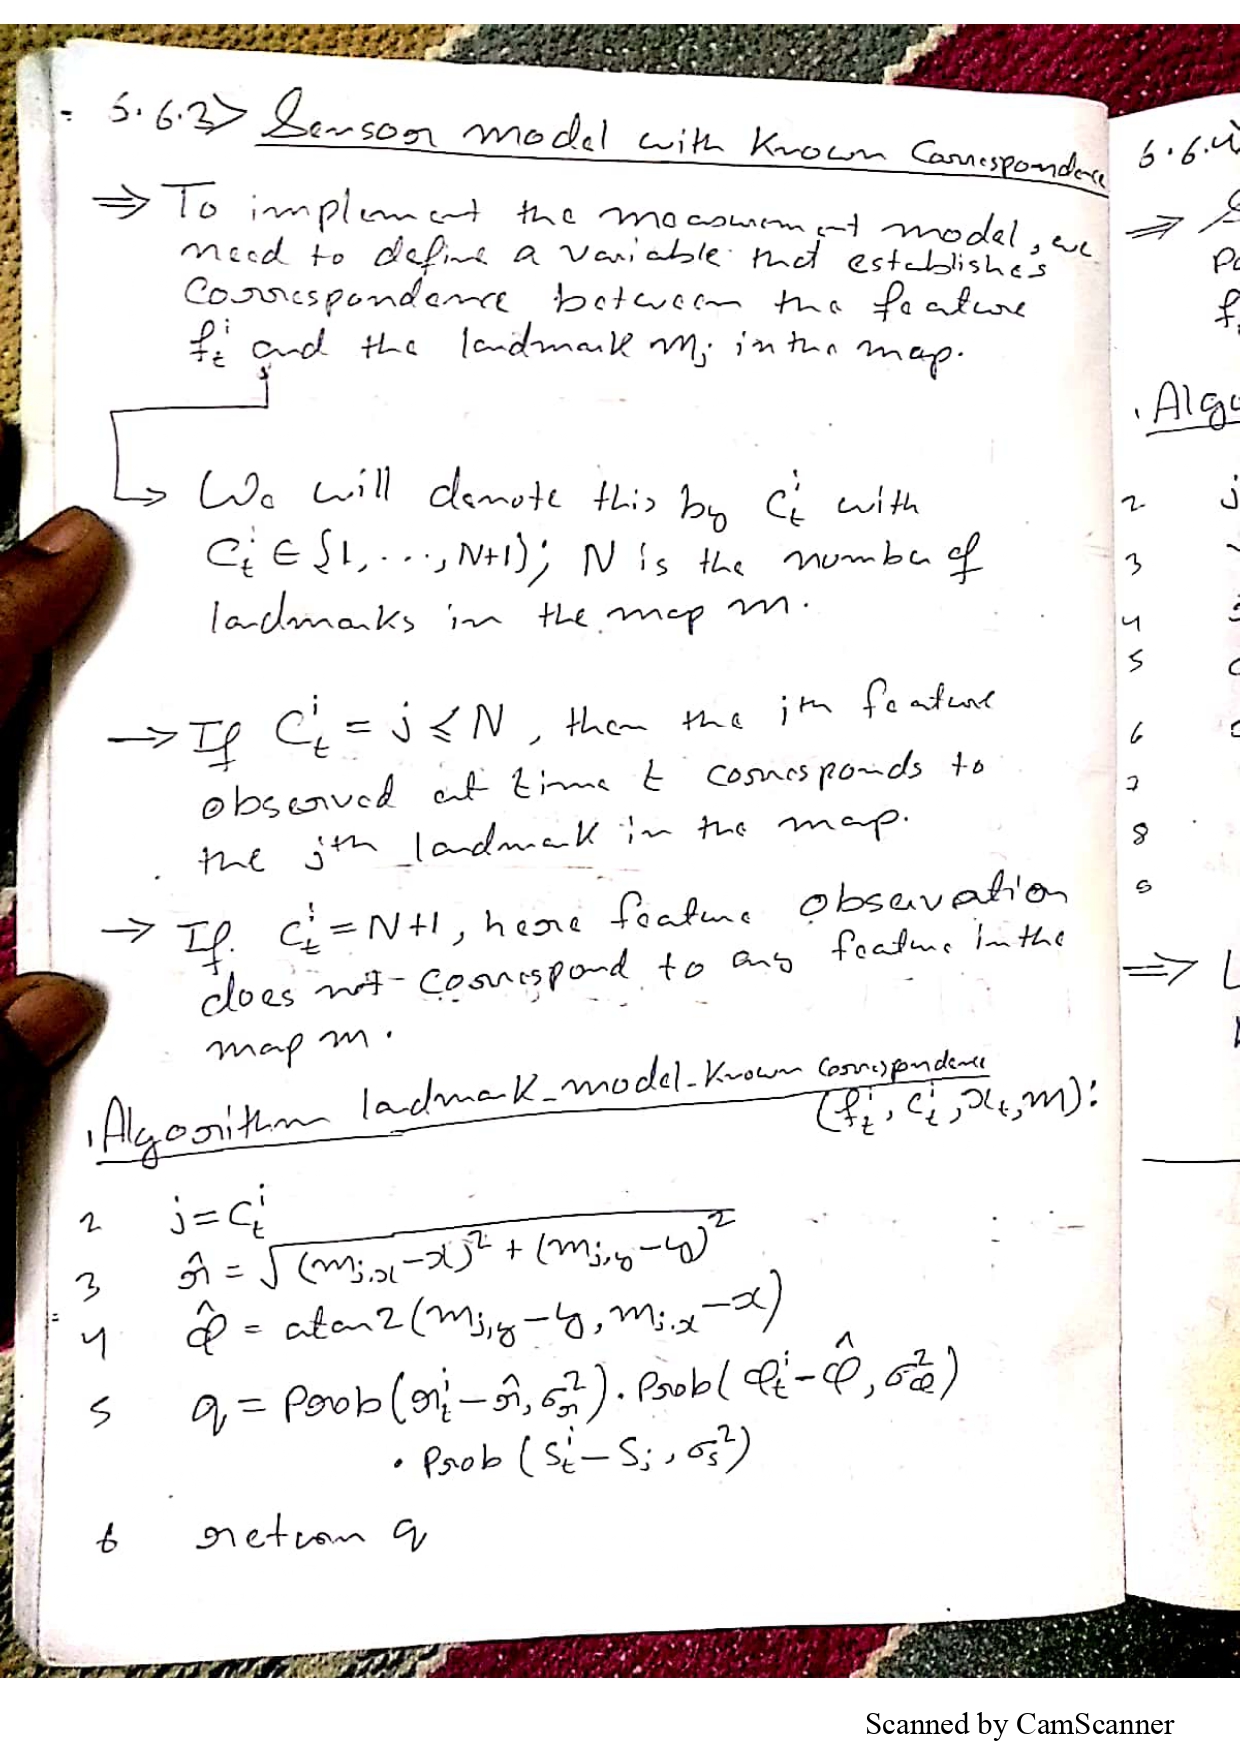 6.6.3> Sensor model with Known Correspondence
⇒ To implement the measurement model, we
need to define a variable that establishes
Correspondence between the feature
fₜⁱ and the landmark mⱼ in the map.
↳ We will denote this by cₜⁱ with
cₜⁱ ∈ {1, ..., N+1}; N is the number of
landmarks in the map m.
→ If cₜⁱ = j ⩽ N, then the iᵗʰ feature
observed at time t corresponds to
the jᵗʰ landmark in the map.
→ If cₜⁱ = N+1, here feature observation
does not correspond to any feature in the
map m.
1 Algorithm landmark_model_Known Correspondence
(fₜⁱ, cₜⁱ, xₜ, m):
2 j = cₜⁱ
3 r̂ = √((mⱼ,ₓ - x)² + (mⱼ,y - y)²)
4 φ̂ = atan2(mⱼ,y - y, mⱼ,ₓ - x)
5 q = Prob(rₜⁱ - r̂, σᵣ²) . Prob(φₜⁱ - φ̂, σφ²)
. Prob(sₜⁱ - sⱼ, σₛ²)
6 return q
6.6.4
⇒
Algo
2 j
3
4
5
6
7
8
⇒
Scanned by CamScanner